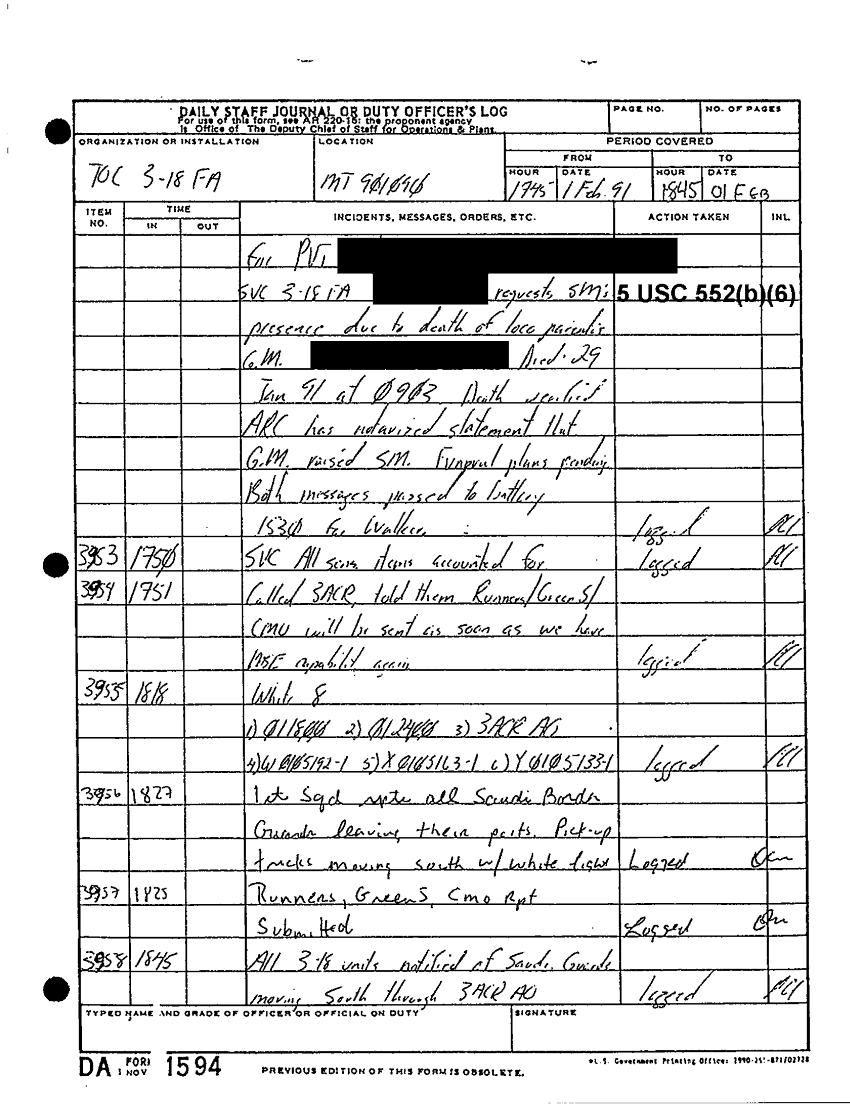 DAILY STAFF JOURNAL OR DUTY OFFICER'S LOG
For use of this form, see AR 220-15; the proponent agency
is Office of The Deputy Chief of Staff for Operations & Plans.
PAGE NO.
NO. OF PAGES
ORGANIZATION OR INSTALLATION
TOC 3-18 FA
LOCATION
MT 901090
PERIOD COVERED
FROM
TO
HOUR
1745
DATE
1 Feb. 91
HOUR
1845
DATE
01 FEB
ITEM NO.
TIME
IN
OUT
INCIDENTS, MESSAGES, ORDERS, ETC.
ACTION TAKEN
INL.
For PVT
SVC 3-18 FA requests SM's 5 USC 552(b)(6)
presence due to death of loco parentis
G.M. Died 29
Jan 91 at 0903. Death verified
ARC has notarized statement that
G.M. raised SM. Funeral plans pending
Both messages passed to battery
1530 for Walker. logged
3953 1750 SVC All sens items accounted for logged
3954 1751 Called 3ACR, told them Runners/Green5/
CMO will be sent as soon as we have
MSE capability again logged
3955 1818 White 8
1) 011800 2) 012400 3) 3ACR AO
4) W0105192-1 5) X0105163-1 6) Y0105133-1 logged
3956 1827 1st Sqd rpts all Saudi Border
Guards leaving their posts. Pick-up
trucks moving south w/ white light Logged
3957 1825 Runners, Green5, Cmo Rpt
Submitted Logged
3958 1845 All 3-18 units notified of Saudi Guards
moving South through 3ACR AO logged
TYPED NAME AND GRADE OF OFFICER OR OFFICIAL ON DUTY
SIGNATURE
DA FORM 1 NOV 1594
PREVIOUS EDITION OF THIS FORM IS OBSOLETE.